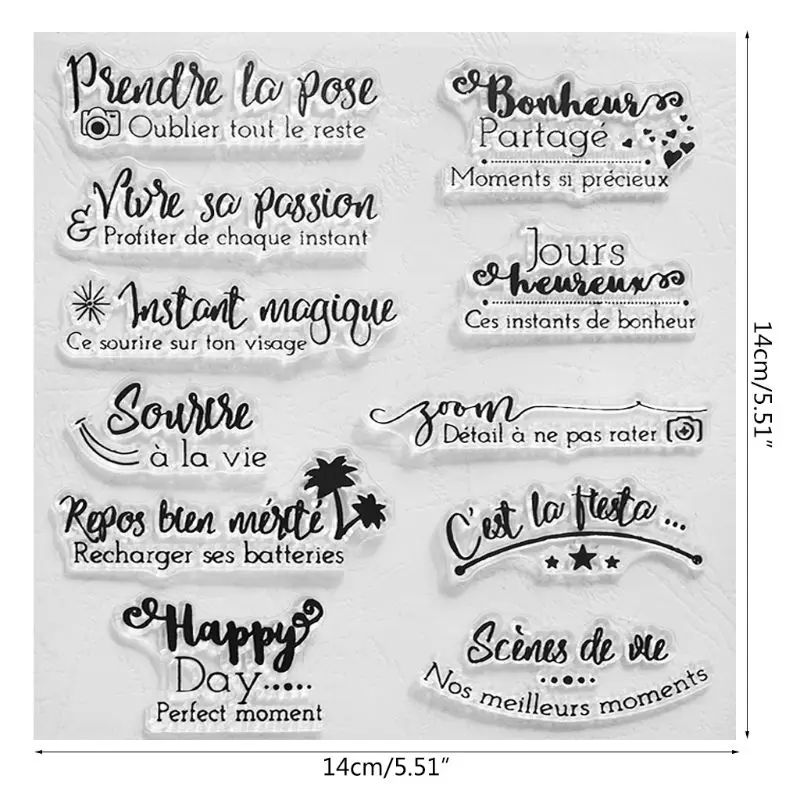 Prendre la pose
Oublier tout le reste
Vivre sa passion
& Profiter de chaque instant
Instant magique
Ce sourire sur ton visage
Sourire
à la vie
Repos bien mérité
Recharger ses batteries
Happy
Day.....
Perfect moment
Bonheur
Partagé
Moments si précieux
Jours
heureux
Ces instants de bonheur
zoom
Détail à ne pas rater
C'est la fiesta...
Scènes de vie
Nos meilleurs moments
14cm/5.51"
14cm/5.51"